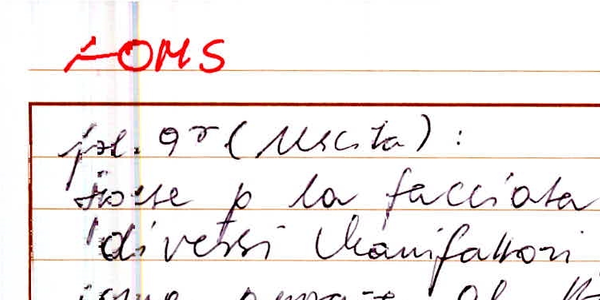 OMS
fol. 9r (Uscita):
spese p la facciata
diversi Manifattori